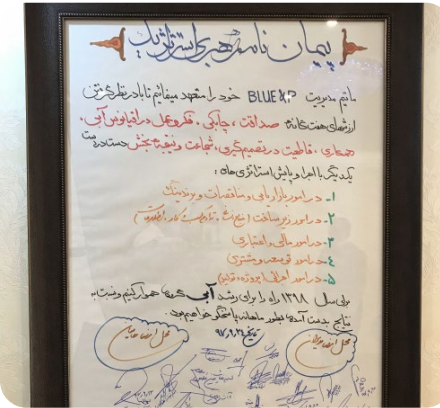 پیمان نامه رهبری استراتژیک
ما تیم مدیریت BLUE&P خود را متعهد میدانیم تا با در نظر گرفتن
ارزشهای هفت گانه صداقت، چابکی، فکر و عمل در اقیانوس آبی،
همکاری، قاطعیت در تصمیم گیری، شجاعت و نتیجه بخش دست در دست
یکدیگر با اجرا و پایش استراتژی های:
۱- در امور بازاریابی و مناقصات و برندینگ
۲- در امور زیرساخت
۳- در امور مالی و اعتباری
۴- در امور توسعه و مشتری
۵- در امور اجرائی پروژه و تولید
برای سال ۱۳۹۸ راه را برای رشد آبی هموار کنیم و نسبت به
نتایج بدست آمده بطور ماهانه پاسخگو خواهیم بود.
تاریخ
محل امضا مدیران
محل امضا